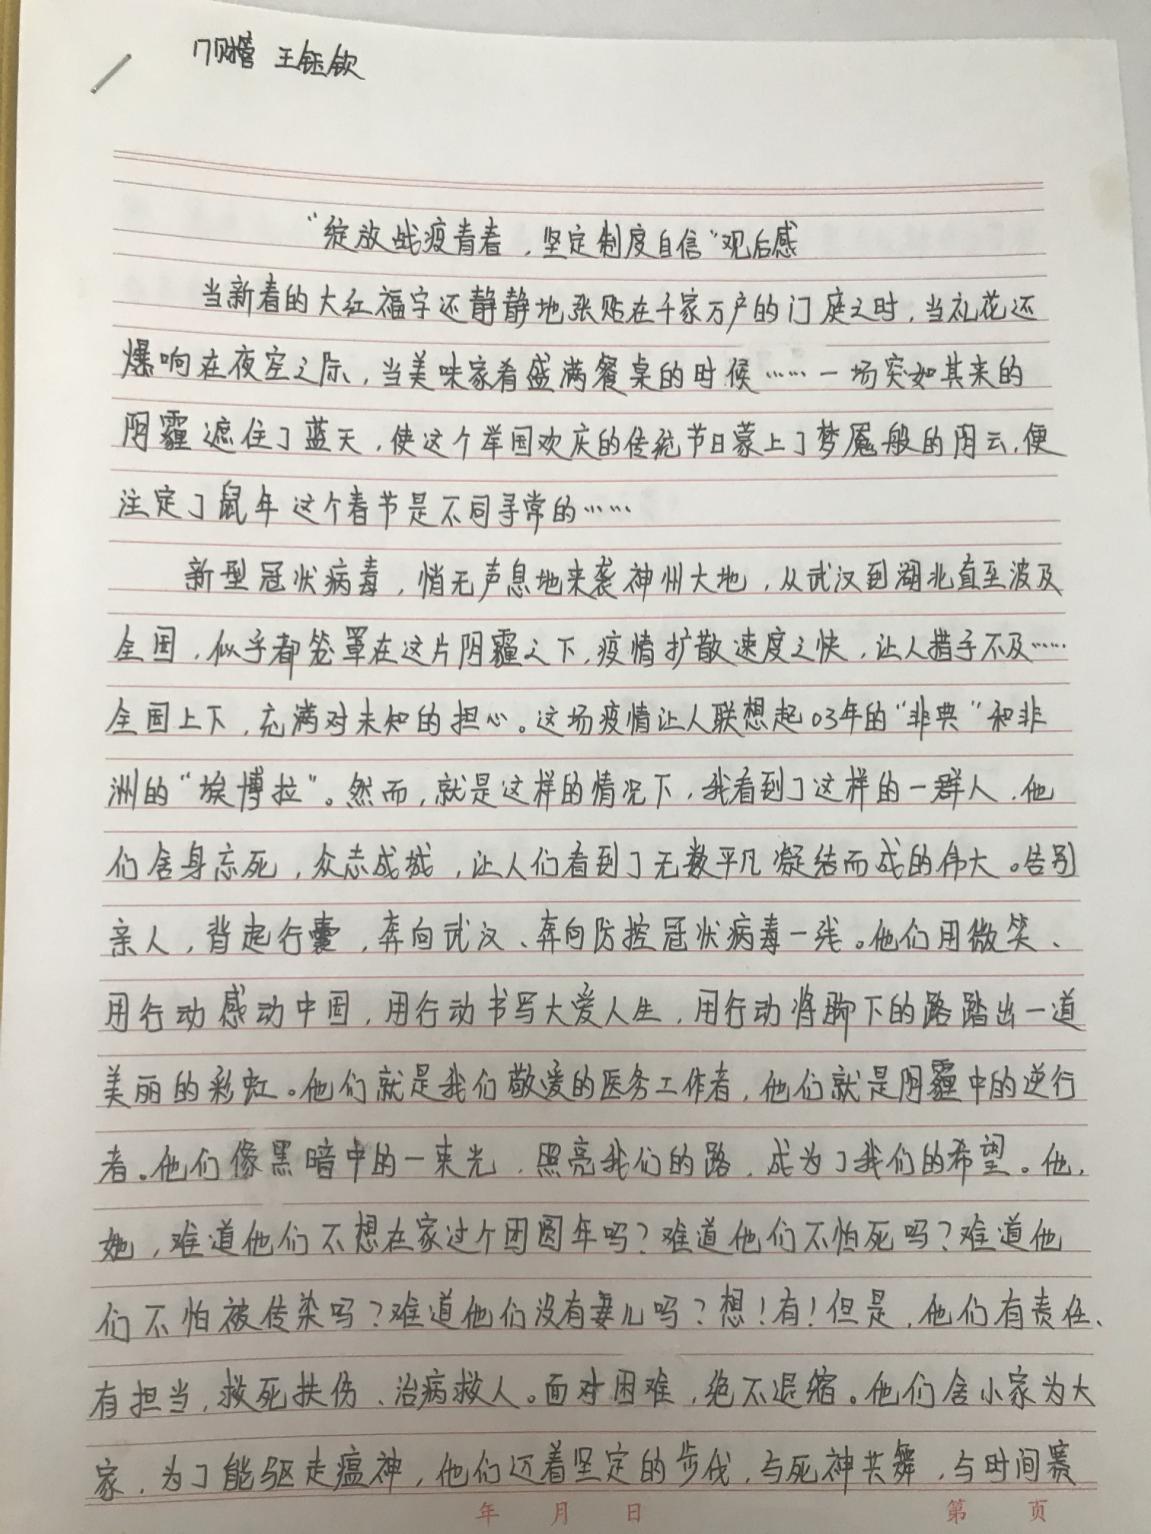 17财管 王钰钦
“绽放战疫青春，坚定制度自信”观后感
当新春的大红福字还静静地张贴在千家万户的门庭之时，当礼花还
爆响在夜空之际，当美味家肴盛满餐桌的时候……一场突如其来的
阴霾遮住了蓝天，使这个举国欢庆的传统节日蒙上了梦魇般的阴云，便
注定了鼠年这个春节是不同寻常的……
新型冠状病毒，悄无声息地来袭神州大地，从武汉到湖北直至波及
全国，似乎都笼罩在这片阴霾之下，疫情扩散速度之快，让人措手不及……
全国上下，充满对未知的担心。这场疫情让人联想起03年的“非典”和非
洲的“埃博拉”。然而，就是这样的情况下，我看到了这样的一群人，他
们舍身忘死，众志成城，让人们看到了无数平凡凝结而成的伟大。告别
亲人，背起行囊，奔向武汉、奔向防控冠状病毒一线。他们用微笑、
用行动感动中国，用行动书写大爱人生，用行动将脚下的路踏出一道
美丽的彩虹。他们就是我们敬爱的医务工作者，他们就是阴霾中的逆行
者。他们像黑暗中的一束光，照亮我们的路，成为了我们的希望。他，
她，难道他们不想在家过个团圆年吗？难道他们不怕死吗？难道他
们不怕被传染吗？难道他们没有妻儿吗？想！有！但是，他们有责任、
有担当，救死扶伤、治病救人。面对困难，绝不退缩。他们舍小家为大
家，为了能驱走瘟神，他们迈着坚定的步伐，与死神共舞，与时间赛
年 月 日 第 页